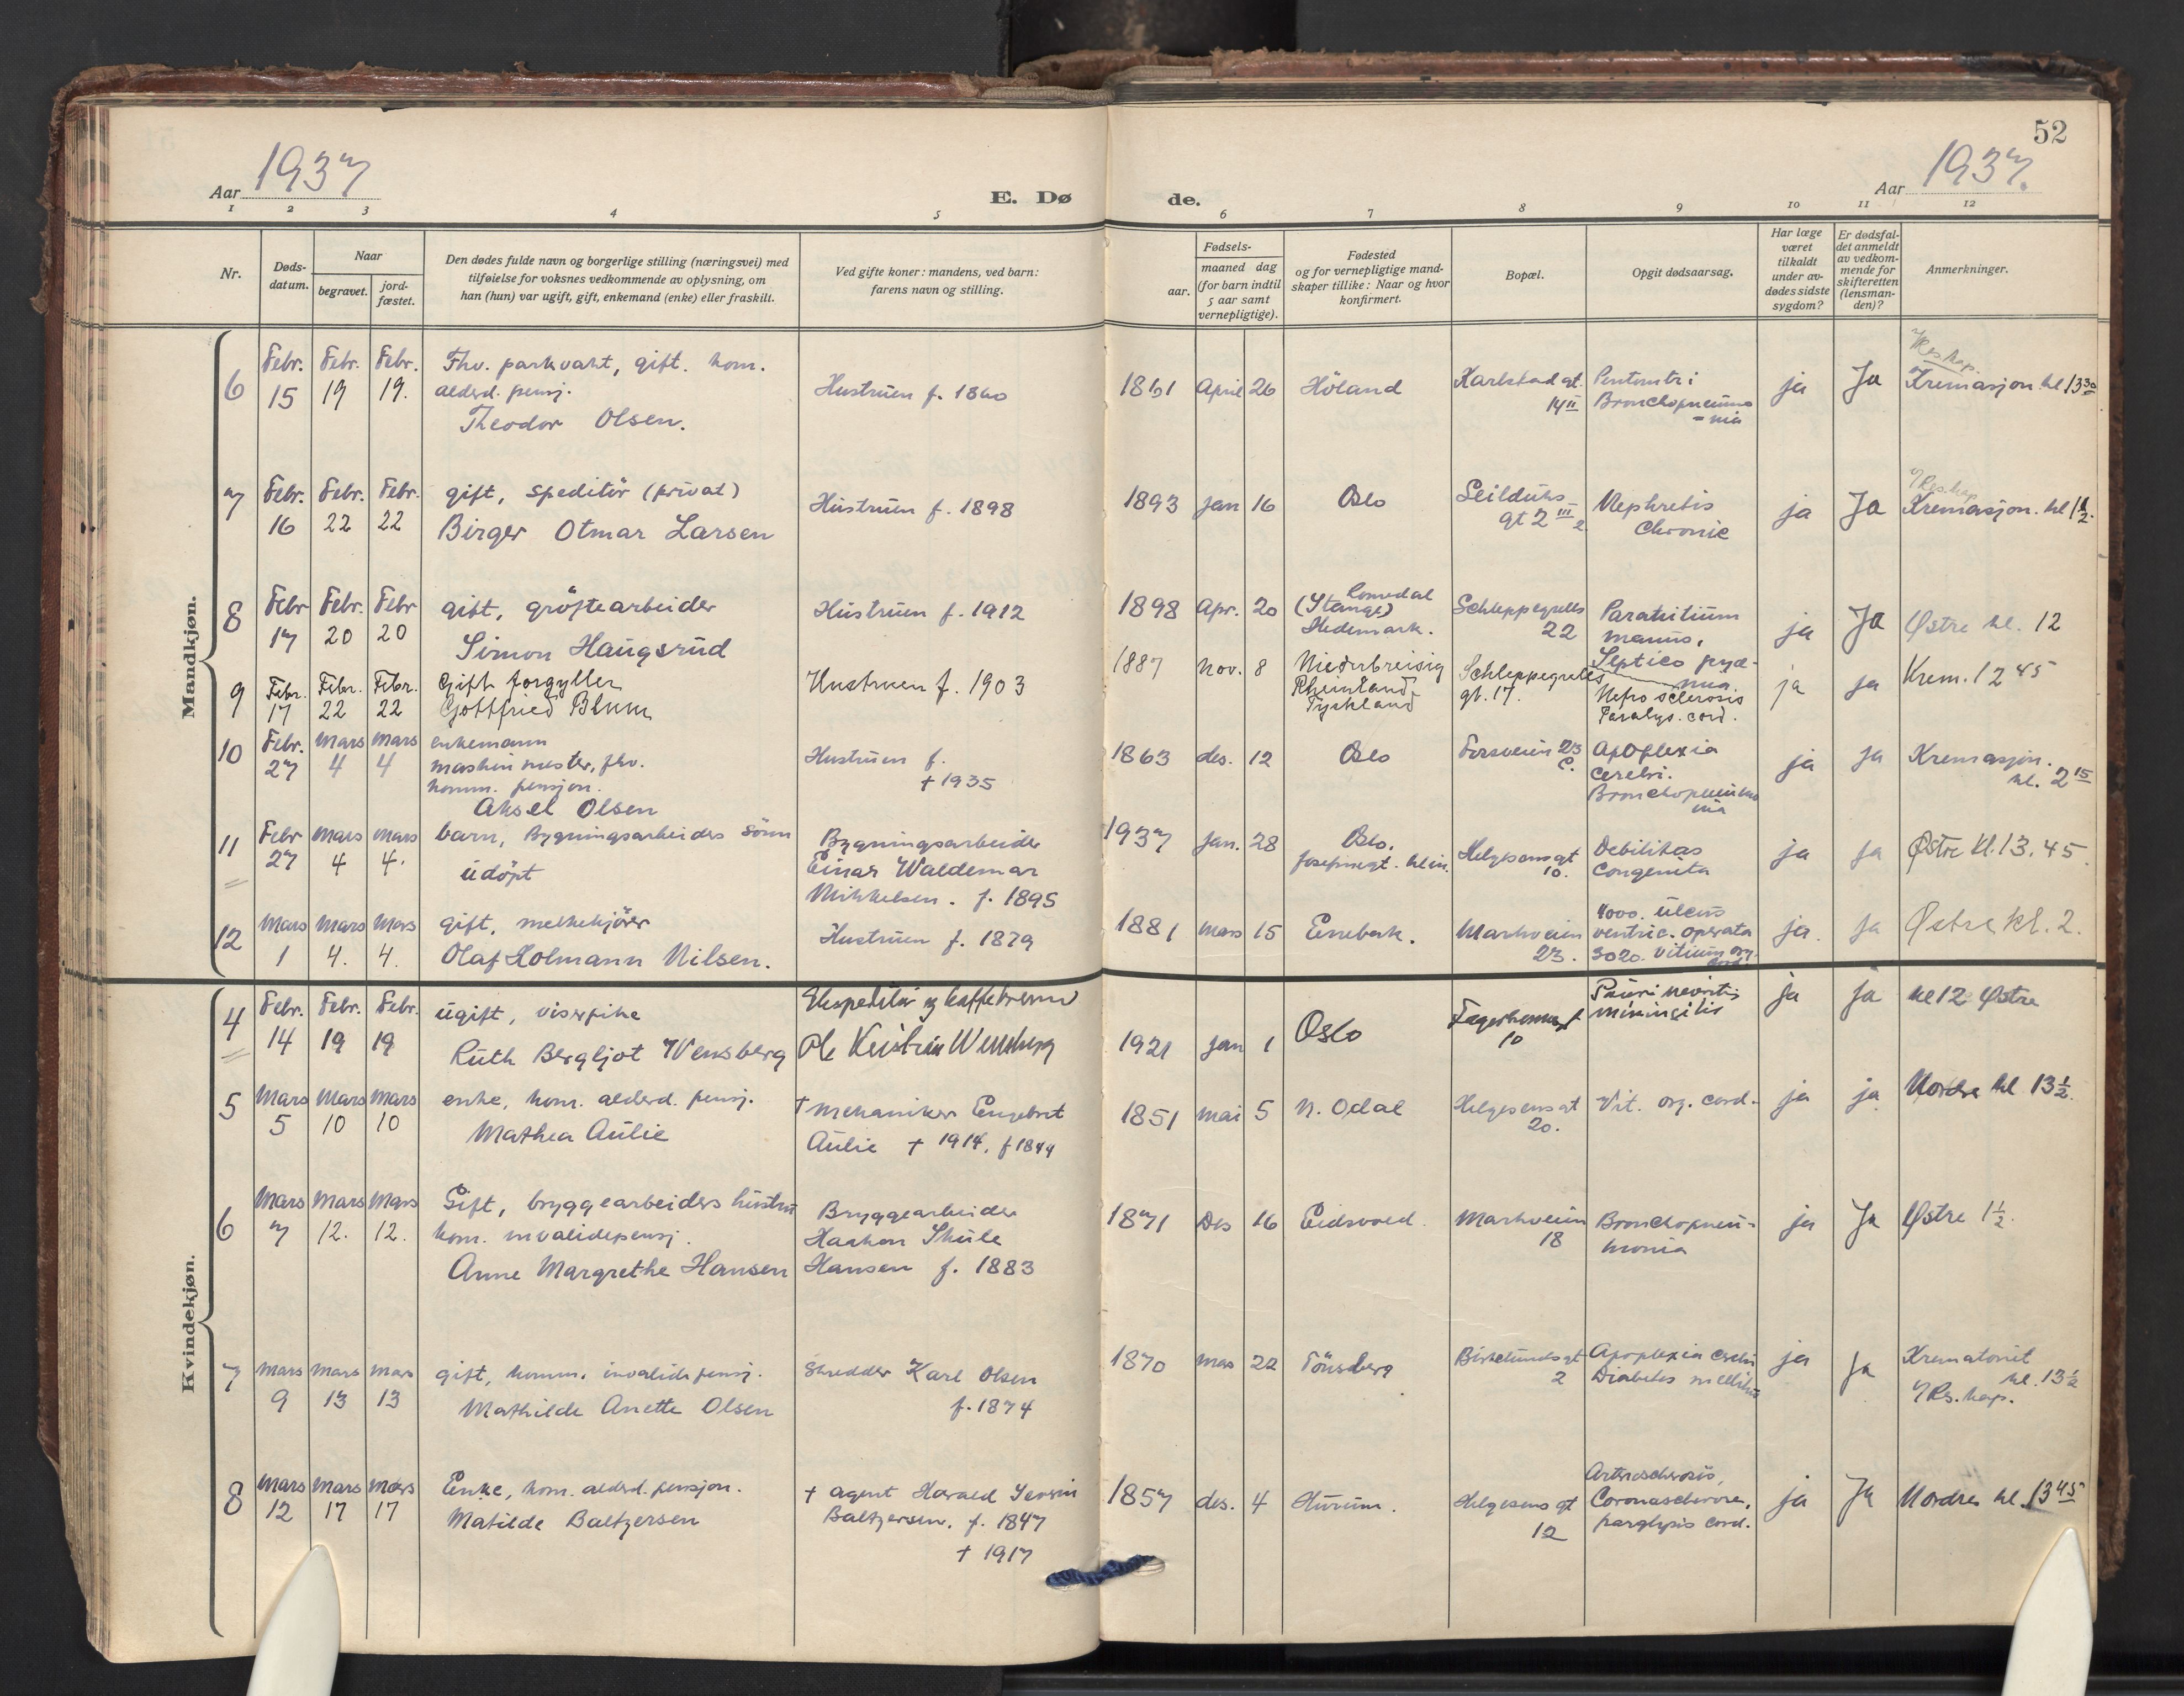 52
Aar 1937
E. Dø
de.
Aar 1937.
1 2 3 4 5 6 7 8 9 10 11 12
Nr.
Døds-
datum.
Naar
begravet.
jord-
fæstet.
Den dødes fulde navn og borgerlige stilling (næringsvei) med
tilføielse for voksnes vedkommende av oplysning, om
han (hun) var ugift, gift, enkemand (enke) eller fraskilt.
Ved gifte koner: mandens, ved barn:
farens navn og stilling.
Fødsels-
aar.
maaned dag
(for barn indtil
5 aar samt
vernepligtige).
Fødested
og for vernepligtige mand-
skaper tillike: Naar og hvor
konfirmert.
Bopæl.
Opgit dødsaarsag.
Har læge
været
tilkaldt
under av-
dødes sidste
sygdom?
Er dødsfal-
det anmeldt
av vedkom-
mende for
skifteretten
(lensman-
den)?
Anmerkninger.
Mandkjøn.
6
Febr. 15
Febr. 19
Febr. 19.
Fhv. parkvakt, gift. kom.
alderd. pensj.
Theodor Olsen.
Hustruen f. 1860
1861 April 26
Höland
Karlstad gt.
14 II
Bronchopneumo
=nia
ja
Ja
Kremasjon kl 13 30
7
Febr. 16
Febr. 22
Febr. 22
gift, speditör (privat)
Birger Otmar Larsen
Hustruen f. 1898
1893 jan 16
Oslo
Seilduks-
gt 2 III 2
Nephretis
Chronic
ja
Ja
Kremasjon. kl
8
Febr 17
Febr. 20
Febr 20
gift, gröftearbeider
Simon Haugsrud
Hustruen f. 1912
1898 Apr. 20
Romedal
(Stange)
Hedemark.
Schleppegrells
22
manus,
Septico pyæ-
mia.
ja
Ja
Østre kl. 12
9
Febr. 17
Febr. 22
Febr. 22
Gift forgyller
Gottfried Blum
Hustruen f. 1903
1887 nov. 8
Niederbreisig
Rheinland
Tyskland
Schleppegrells
gt. 17.
Nefrosclerosis
Paralys. cord.
ja
ja
Krem. 12 45
10
Febr. 27
mars 4
mars 4
enkemann
maskinmester, fhv.
komm. pensjon.
Aksel Olsen
Hustruen f.
† 1935
1863 des. 12
Oslo
Forsveien 23
C.
Apoplexia
Cerebri.
Bronchopneumo
nia
ja
ja
Kremasjon.
kl. 2 15
11
Febr 27
mars 4
mars 4.
barn, Bygningsarbeides sönn
udöpt
Bygningsarbeider
Einar Waldemar
Mikkelsen. f. 1895
1937 jan. 28
Oslo.
Josefinegt. klin.
Helgesens gt
10.
Debilitas
Congenita
ja
ja
Østre kl. 13.45
12
Mars 1
Mars 4.
Mars 4.
gift, melkekjörer
Olaf Holmann Nilsen.
Hustruen f. 1879
1881 mars 15
Enebak.
Markveien
23.
4000. Ulcus
ventric. operata
3020. Vitium org.
cord.
ja.
ja
Østre kl. 2.
Kvindekjøn.
4
Febr. 14
Febr. 19
Febr. 19
ugift, viserpike
Ruth Bergljot Wensberg
Ole Kristian Wensberg
1921 jan 1
Oslo
10
ja
ja
kl 12 Østre
5
Mars 5
Mars 10
mars 10
enke, kom. alderd. pensj.
Mathea Aulie
† mekaniker Engebret
Aulie † 1914. f 1844
1851 mai 5
N. Odal
Helgesens gt
20.
Vit. org. cord.
ja
ja
Nordre kl 13 1/2.
6
Mars 7
Mars 12.
Mars 12.
Gift, bryggearbeiders hustru
kom. invalidepensj.
Anne Margrethe Hansen
Bryggearbeider
Haakon Skule
Hansen f. 1883
1871 Des 16
Eidsvold.
Markveien
18
Bronchopneu-
monia
ja
Ja
Østre 1 1/2.
7
Mars 9
mars 13
mars 13
gift, komm. invalidepensj.
Mathilde Anette Olsen
Skredder Karl Olsen
f. 1874
1870 mars 22
Tönsberg
Birkelunds gt
2
Apoplexia cerebri
Diabetes mellitus
ja
ja
Krematoriet
kl. 13 1/2
v/ Res. kap.
8
Mars 12
mars 17
mars 17
Enke, kom. alderd. pensjon.
Matilde Baltzersen
† agent Harald
Baltzersen. f. 1847
† 1917
1857 des. 4
Hurum.
Helgesens gt
12
Arteriosclerosis,
paralysis cord.
ja
Ja
Nordre kl. 13 45